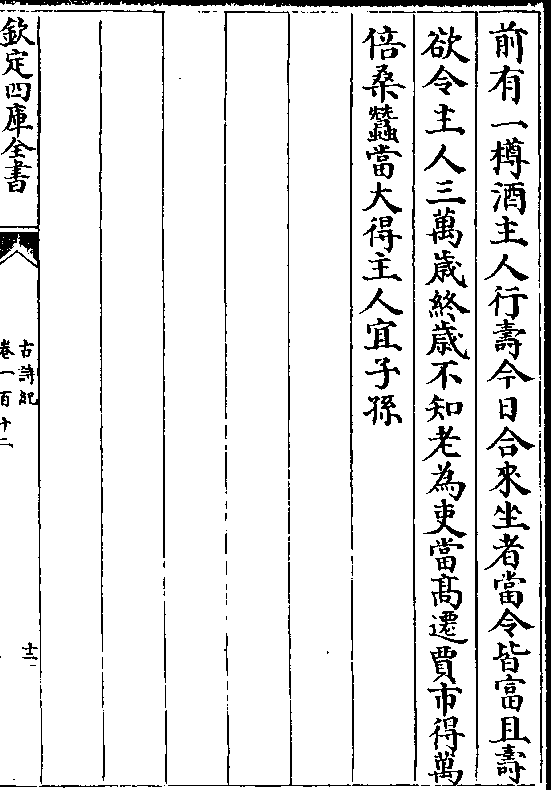 前有一樽酒主人行壽今日合來坐者當令皆富且壽
欲令主人三萬歳終歳不知老為吏當髙遷賈市得萬
倍桑蠶當大得主人宜子孫
欽定四庫全書
古詩紀
卷一百十二
十二